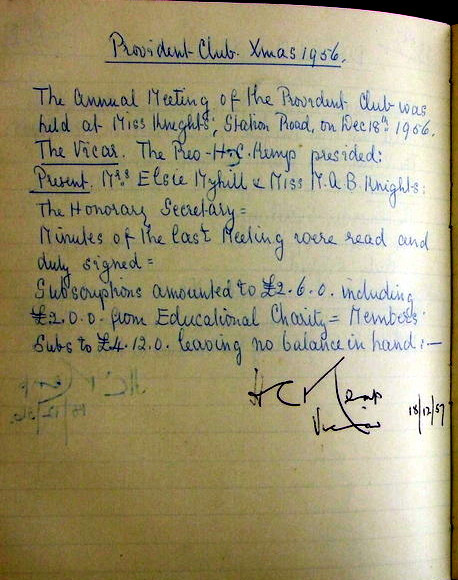 Provident Club. Xmas 1956.
The Annual Meeting of the Provident Club was
held at Miss Knights', Station Road, on Dec 18th 1956.
The Vicar. The Rev H. C. Kemp presided:
Present. Mrs Elsie Myhill & Miss M. A. B. Knights:
The Honorary Secretary =
Minutes of the last Meeting were read and
duly signed =
Subscriptions amounted to £2.6.0. including
£2.0.0. from Educational Charity = Members'
Subs to £4.12.0. leaving no balance in hand :—
H C Kemp
Vicar 18/12/57